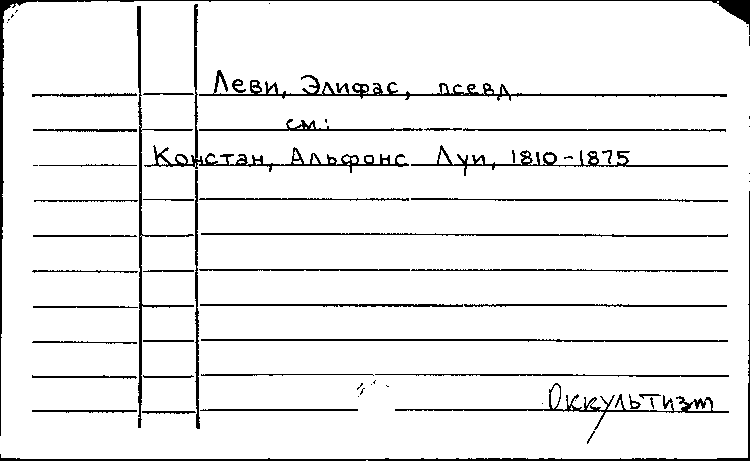 Леви, Элифас, псевд
см.:
Констан, Альфонс Луи, 1810-1875
Оккультизм